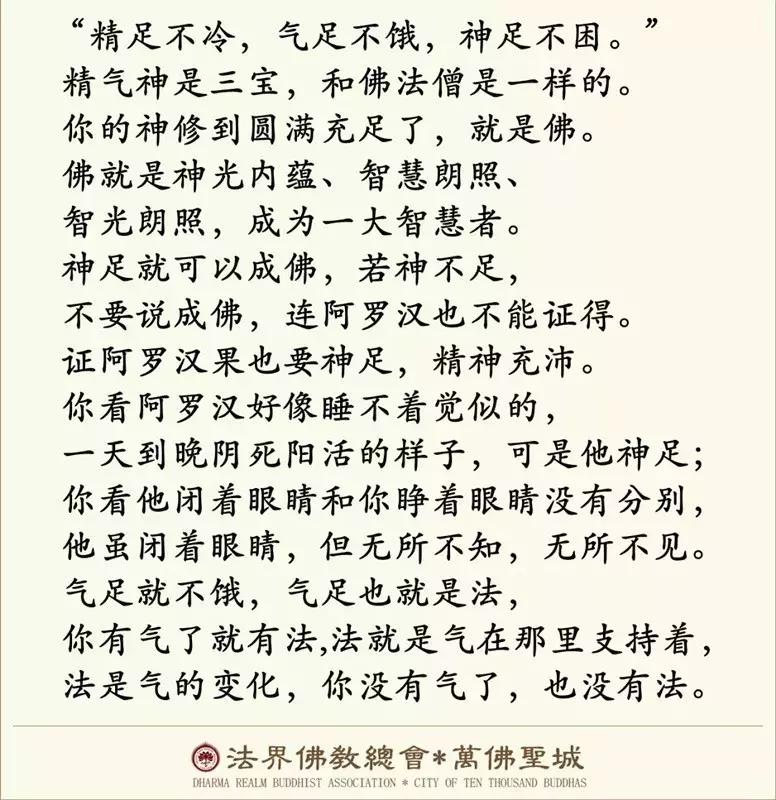 “精足不冷，气足不饿，神足不困。”
精气神是三宝，和佛法僧是一样的。
你的神修到圆满充足了，就是佛。
佛就是神光内蕴、智慧朗照、
智光朗照，成为一大智慧者。
神足就可以成佛，若神不足，
不要说成佛，连阿罗汉也不能证得。
证阿罗汉果也要神足，精神充沛。
你看阿罗汉好像睡不着觉似的，
一天到晚阴死阳活的样子，可是他神足；
你看他闭着眼睛和你睁着眼睛没有分别，
他虽闭着眼睛，但无所不知，无所不见。
气足就不饿，气足也就是法，
你有气了就有法,法就是气在那里支持着，
法是气的变化，你没有气了，也没有法。
法界佛教總會*萬佛聖城
DHARMA REALM BUDDHIST ASSOCIATION * CITY OF TEN THOUSAND BUDDHAS